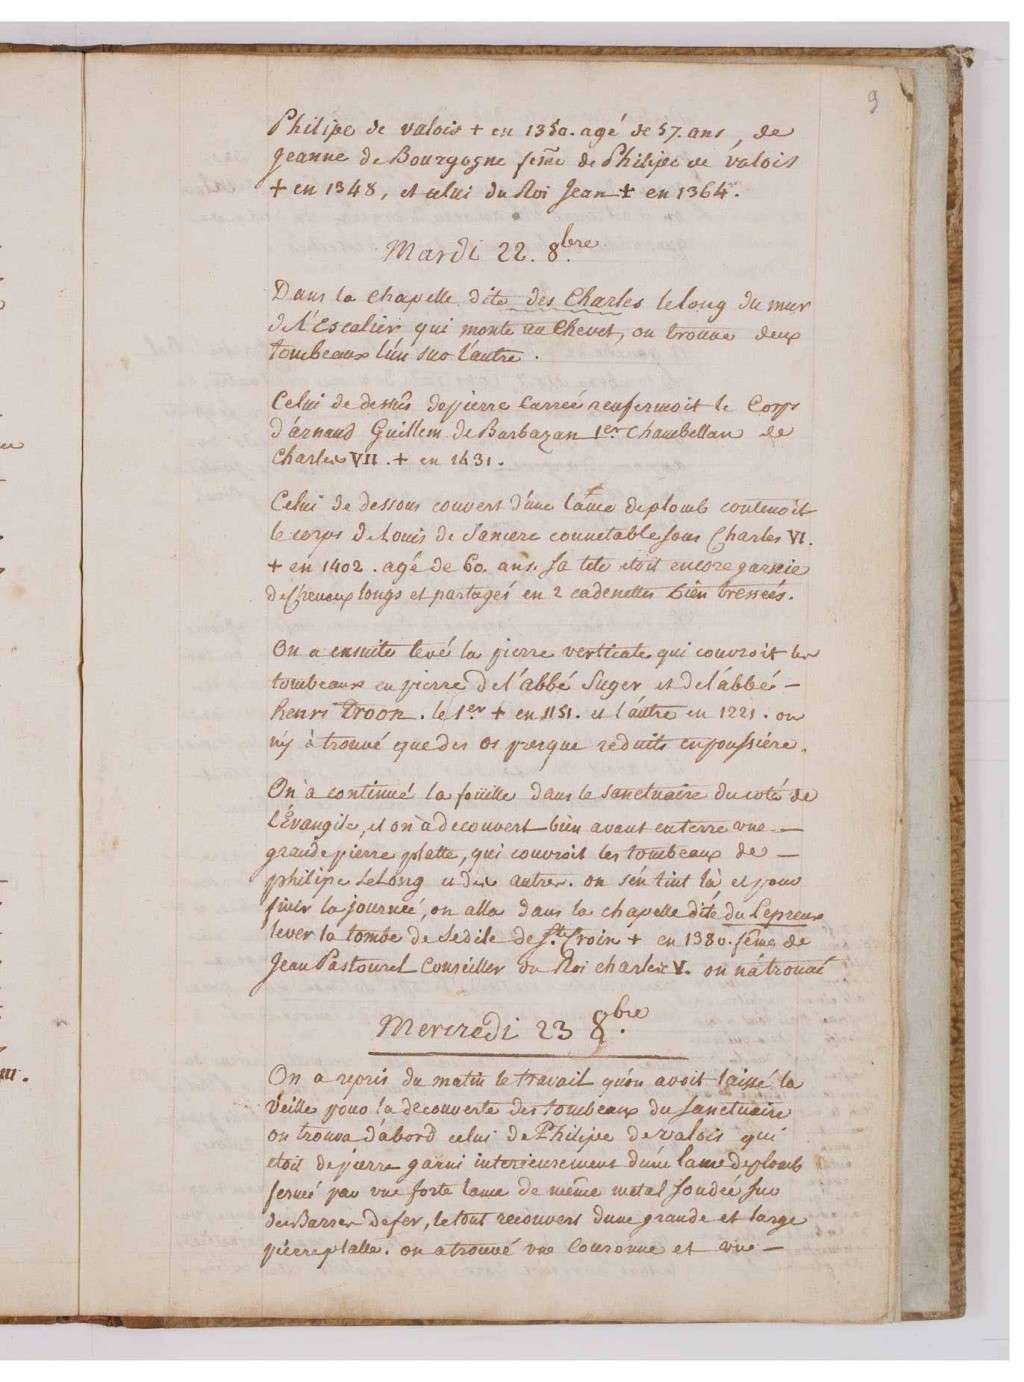 9
Philipe de valois + en 1350. agé de 57. ans, de
Jeanne de Bourgogne feme de Philipe de valois
+ en 1348, et celui du Roi Jean + en 1364.
Mardi 22. 8.bre
Dans la chapelle dite des Charles le long du mur
de l'Escalier qui monte au Chevet, on trouve deux
tombeaux l'un sur l'autre.
Celui de dessus de pierre Carreé renfermoit le Corps
d'arnaud Guillem de Barbazan 1er Chambellan de
Charles VII. + en 1431.
Celui de dessous couvert d'une lame de plomb contenoit
le corps de Louis de Sancere connetable sous Charles VI.
+ en 1402. agé de 60. ans. sa tete etoit encore garnie
de Cheveux longs et partagés en 2 cadenettes bien tresseés.
On a ensuite levé la pierre verticale qui couvroit les
tombeaux en pierre de l'abbé Suger et de l'abbé –
henri Troon. le 1er + en 1151. et l'autre en 1221. on
n'y à trouvé que des os presque reduits en poussiére.
On à continué la fouille dans le sanctuaire du coté de
l'Évangile, et on à decouvert bien avant en terre une –
grande pierre platte, qui couvroit les tombeaux de –
philipe Le Long et des autres. on s'en tint là et pour
finir la journeé, on alla dans la chapelle dite du Lepreux
lever la tombe de Sedile de Ste Croix + en 1380. feme de
Jean Pastourel Conseiller du Roi charles V. on n'à trouvé
Mercredi 23 8bre.
On a repris du matin le travail qu'on avoit laissé la
Veille pour la decouverte des tombeaux du sanctuaire
on trouva d'abord celui de Philipe de valois qui
etoit de pierre garni interieurement d'une lame de plomb
fermé par une forte lame de même metal soudeé sur
des Barres de fer, le tout recouvert d'une grande et large
pierre platte. on a trouvé une Couronne et une –